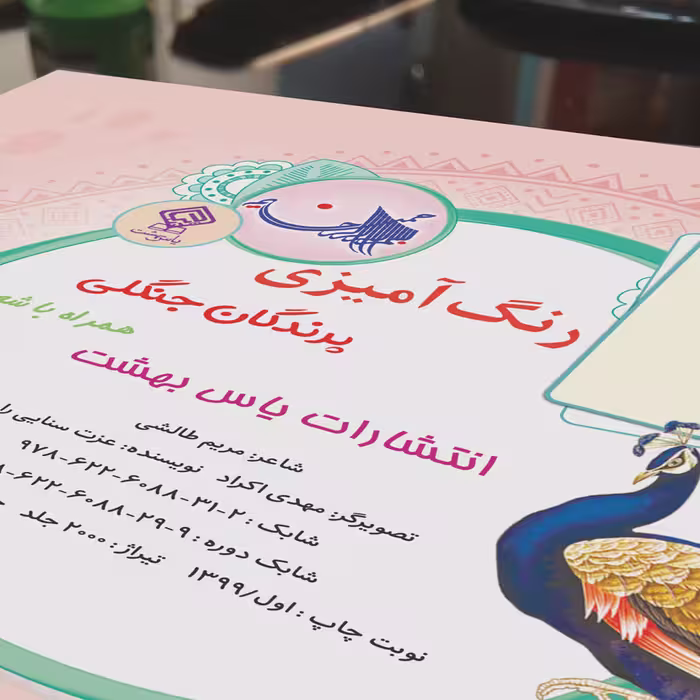 بسم الله الرحمن الرحیم
یاس بهشت
رنگ آمیزی
پرندگان جنگلی
همراه با شع
انتشارات یاس بهشت
شاعر: مریم طالشی
تصویرگر: مهدی اکراد نویسنده: عزت سنایی را
شابک: ۲-۳۱-۶۰۸۸-۶۲۲-۹۷۸
شابک دوره: ۹-۲۹-۶۰۸۸-۶۲۲-۸
تیراژ: ۲۰۰۰ جلد
نوبت چاپ: اول/۱۳۹۹